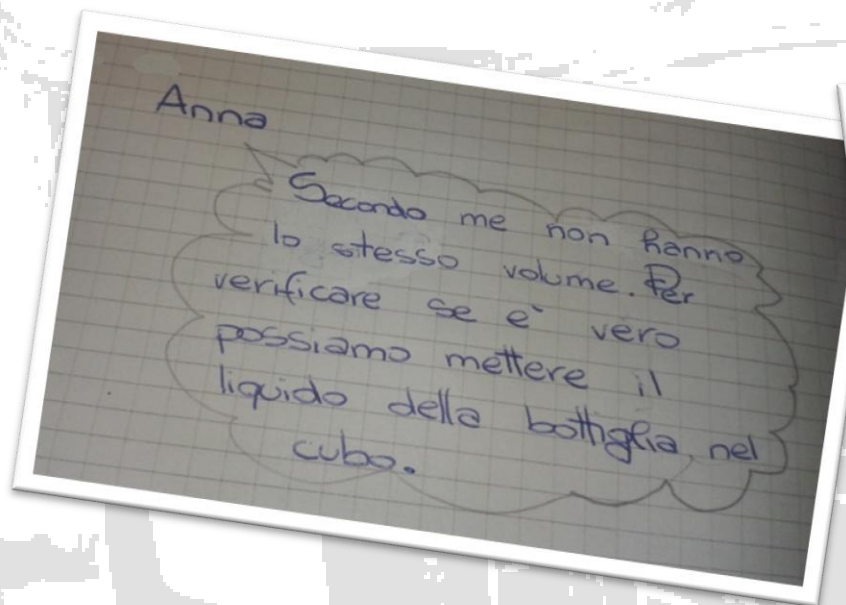 Anna
Secondo me non hanno
lo stesso volume. Per
verificare se è vero
possiamo mettere il
liquido della bottiglia nel
cubo.